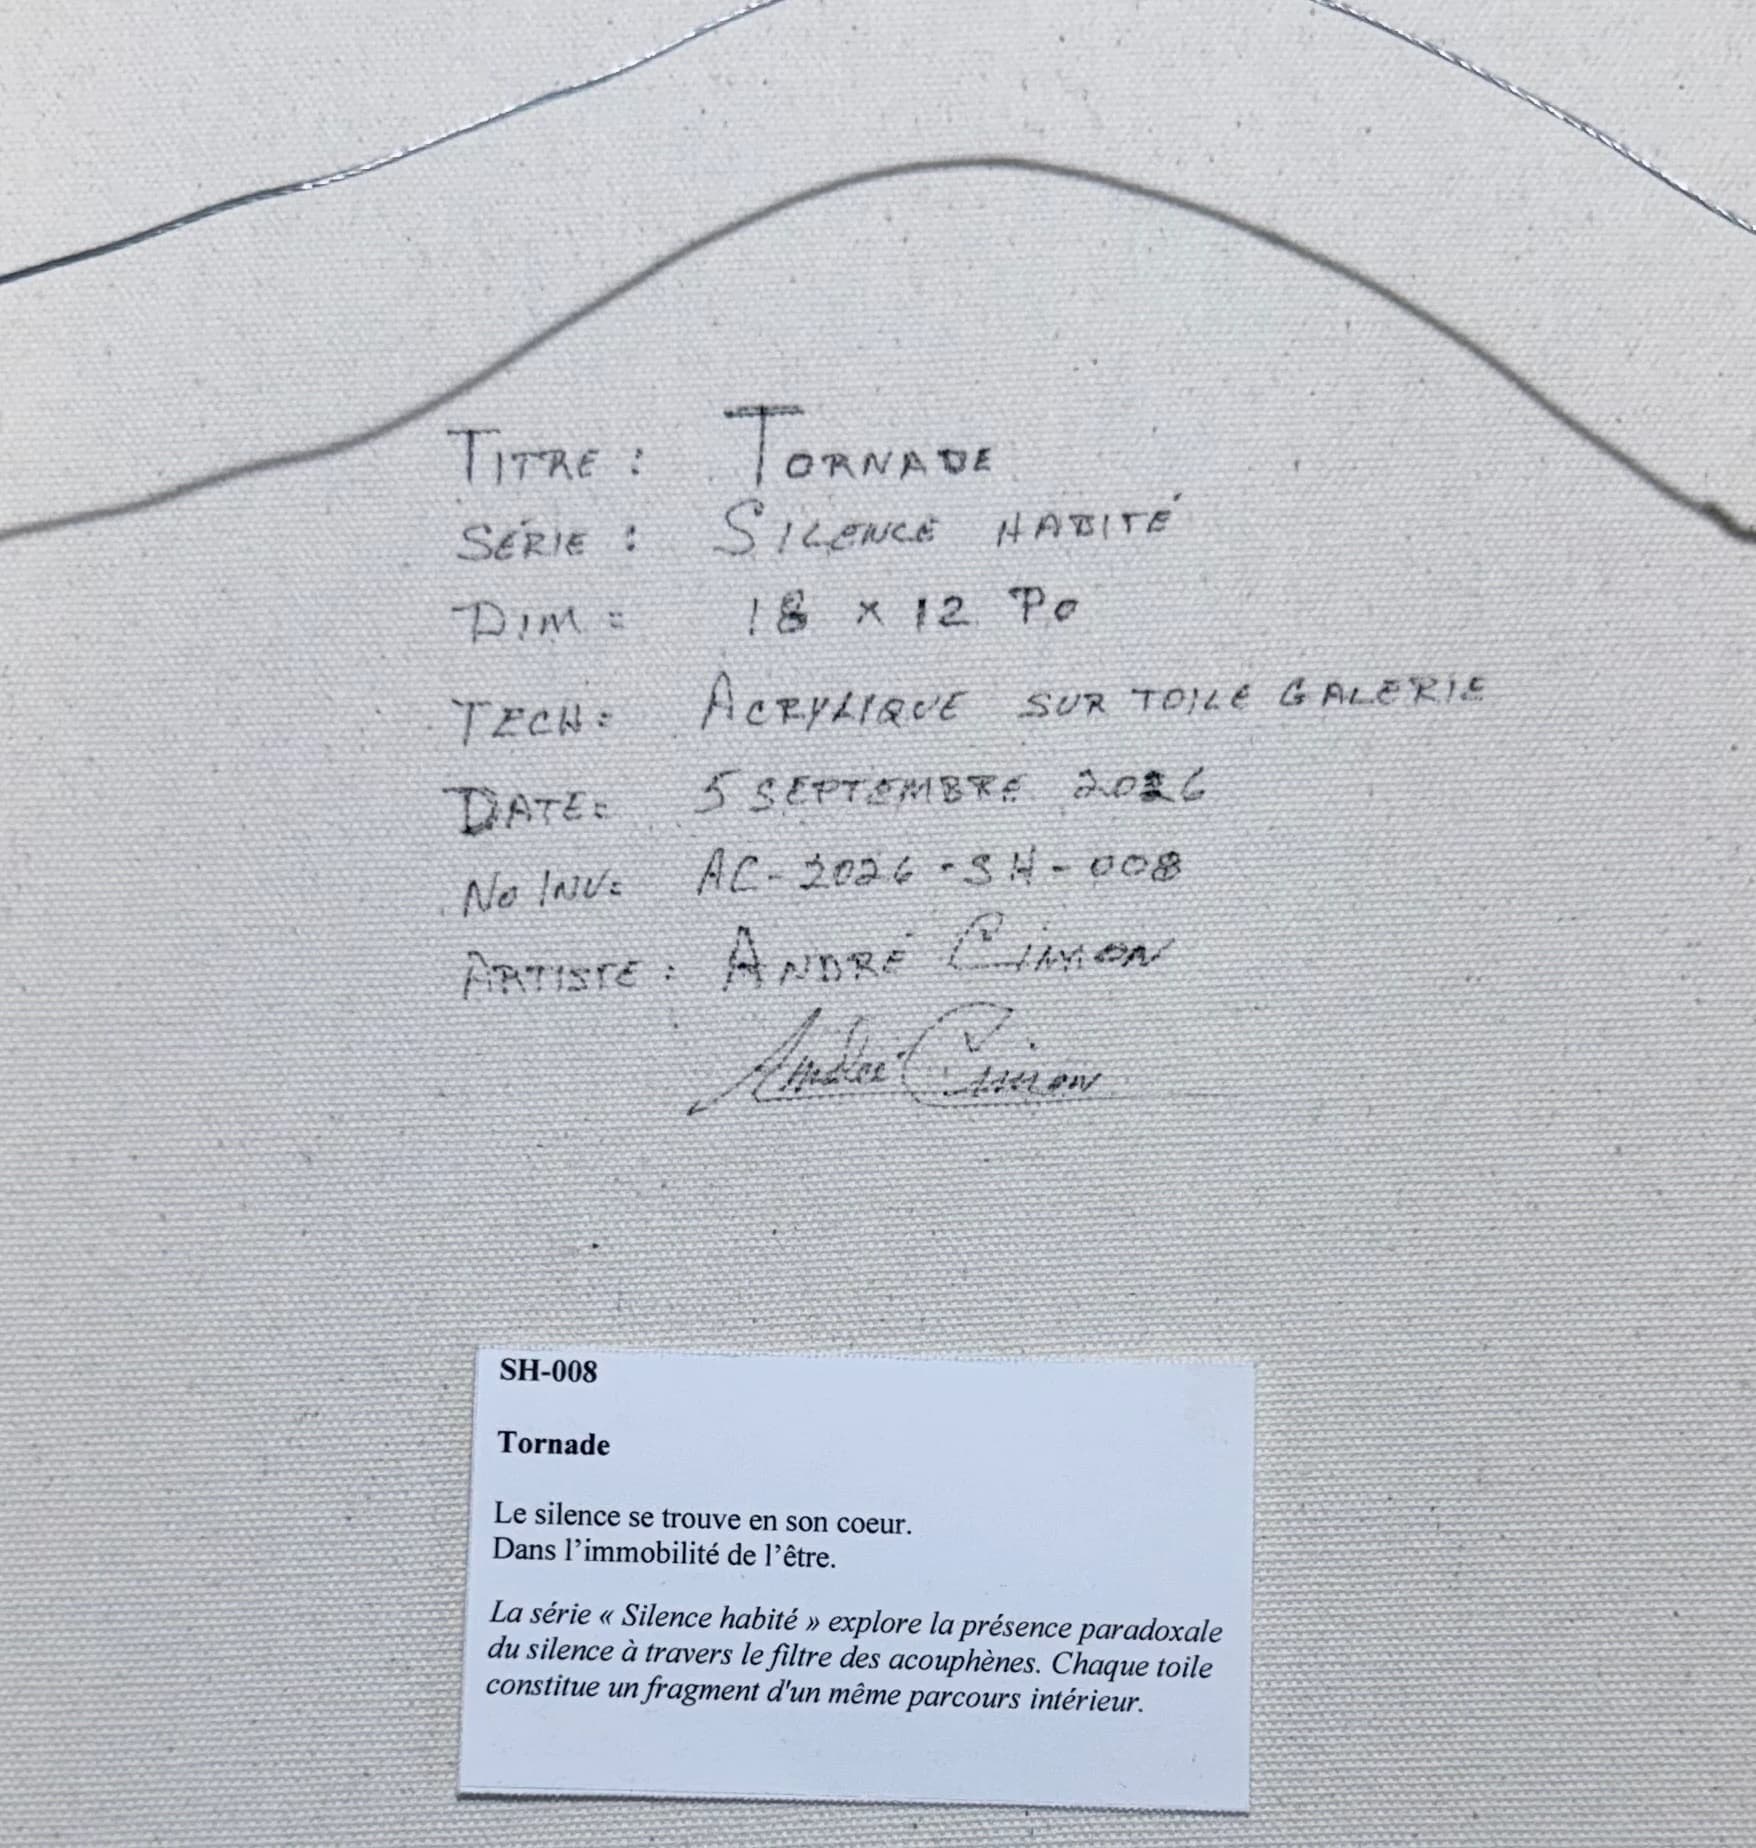 TITRE : TORNADE
SÉRIE : SILENCE HABITÉ
DIM = 18 x 12 Po
TECH = ACRYLIQUE SUR TOILE GALERIE
DATE = 5 SEPTEMBRE 2026
No INV = AC-2026-SH-008
ARTISTE : ANDRÉ CIMON
André Cimon
SH-008
Tornade
Le silence se trouve en son coeur.
Dans l’immobilité de l’être.
La série « Silence habité » explore la présence paradoxale
du silence à travers le filtre des acouphènes. Chaque toile
constitue un fragment d'un même parcours intérieur.